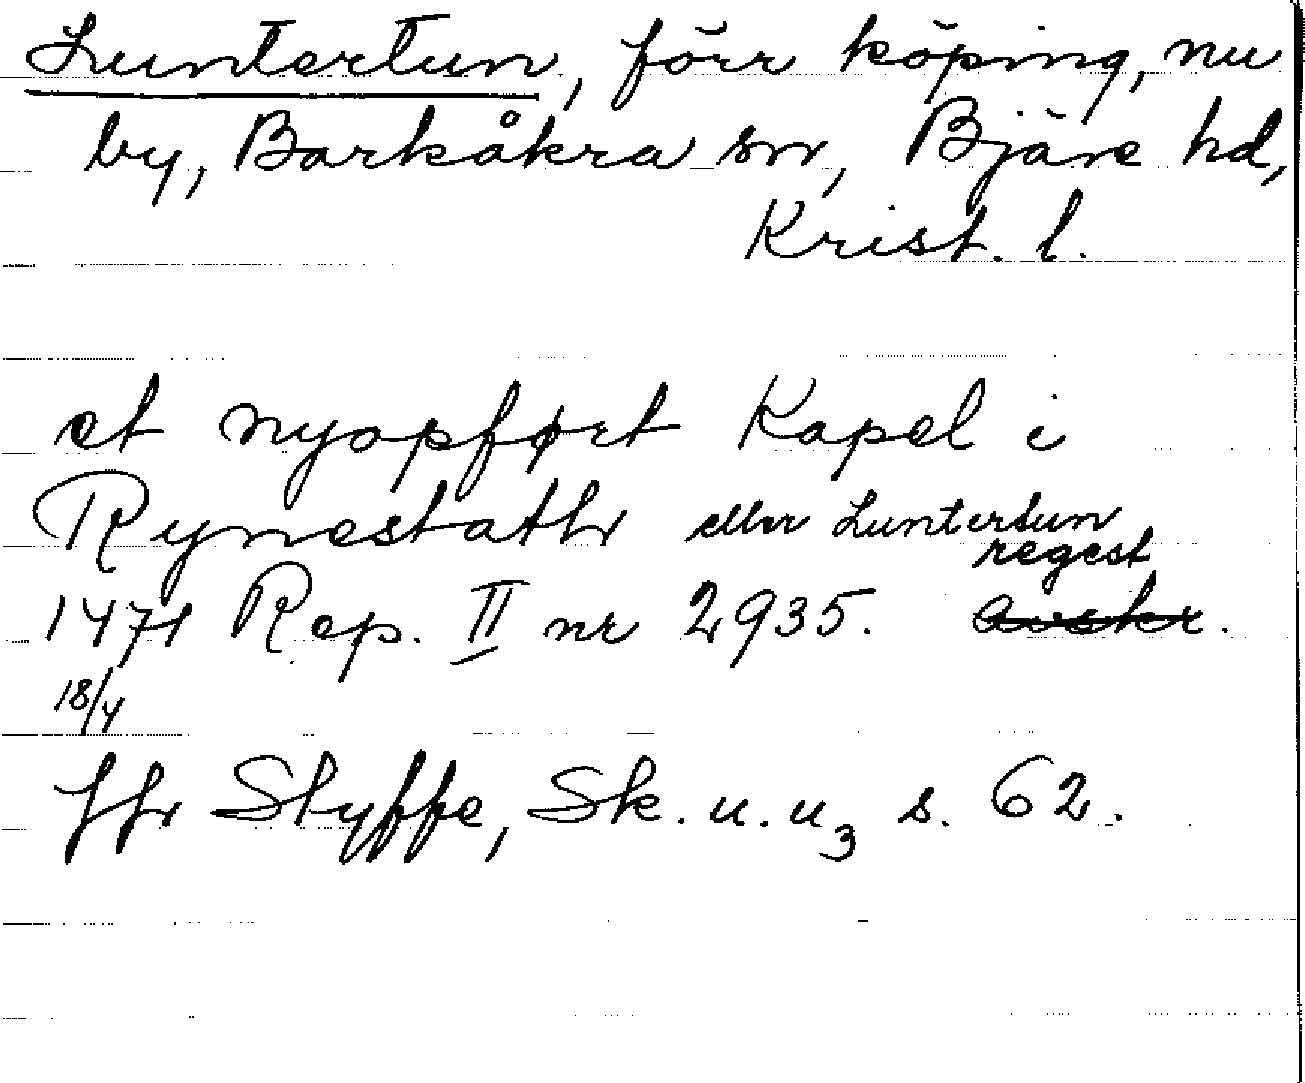 Luntertun, förr köping, nu
by, Barkåkra sn, Bjäre hd,
Krist. l.
et nyopført Kapel i
Rynestath eller Luntertun
regest
1471 Rep. II nr 2935. avskr.
18/4
Jfr Styffe, Sk. u. u3 s. 62.